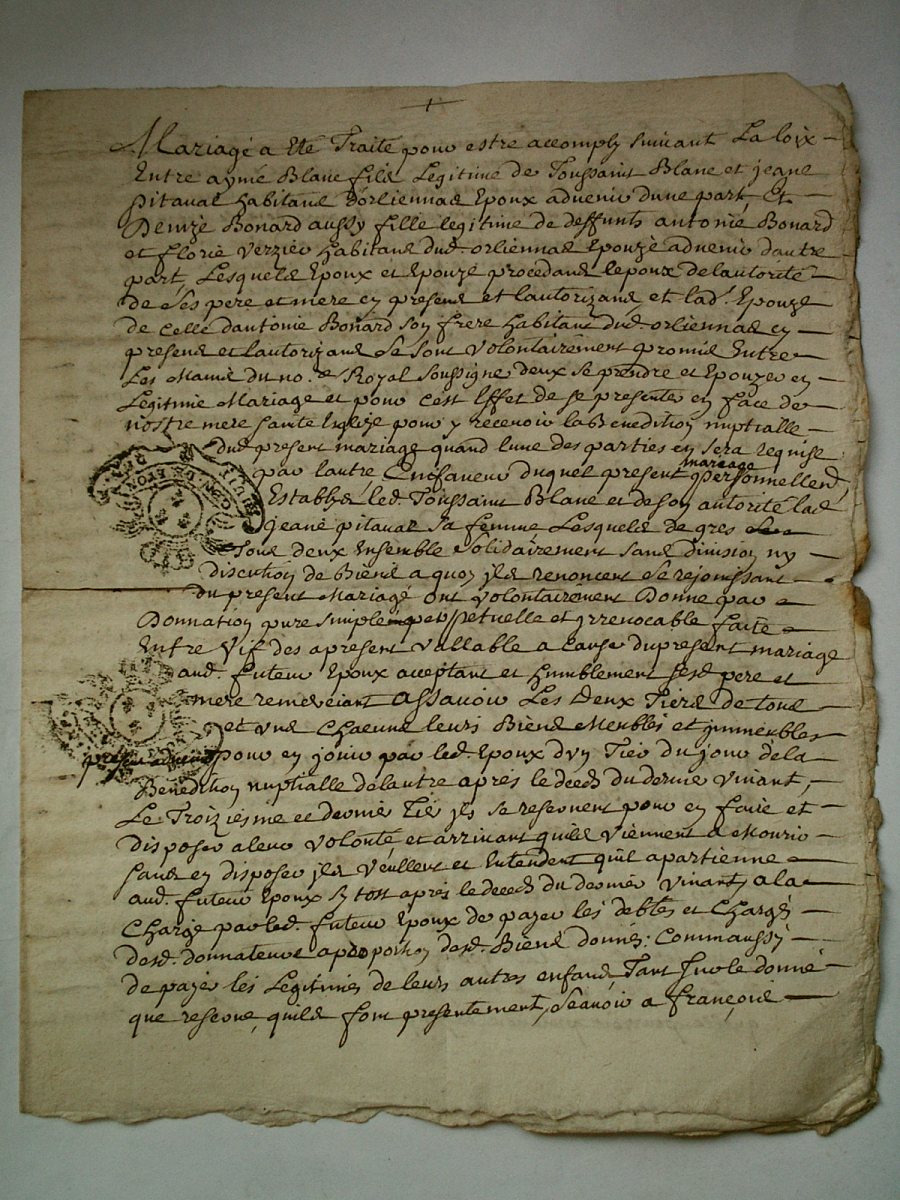 +
Mariage a ete Traité pour estre accomply suivant La loix
Entre aymé Blanc fils Legitime de Toussaint Blanc et jeane
pitaval habitans d'orliennas Epoux advenir dune part, Et
Denize Bonard aussy fille legitime de deffunts antoine Bonard
et florie Verzier habitans dud. orliennas Epouze advenir dautre
part, Lesquels Epoux et Epouze procedans lepoux de lautorité
de ses pere et mere cy presens et lautorizans et lad. Epouze
de celle dantoine Bonard son frere habitant dud. orliennas cy
present et lautorizant se sont volontairement promis Entre
Les Mains du no.re Royal soussigné deux se prendre et Epouzer en
Legitime Mariage et pour c'est Effet de se presenter en face de
nostre mere sainte Eglize pour y recevoir la Benediction nuptialle
dud. present mariage quand lune des parties en sera requise
par lautre, En faveur duquel present mariage personnellemt
Establys led. Toussaint Blanc et de son autorité lad
jeane pitaval sa femme Lesquels de gres
Tous deux Ensemble solidairement sans division ny
discution de Biens a quoy ils renoncent se rejouissant
du present Mariage ont volontairement Donné par
Donnation pure simple perpetuelle et irrevocable faite
Entre Vif des apresent vallable a cause du present mariage
aud. futeur Epoux acceptant et humblement sesd. pere et
mere remerciant assavoir Les Deux Tiers de tous
et uns Chacuns leurs Biens Meubles et jmmeubles
pour en jouir par led. Epoux d'un Tier du jour de la
Benediction nuptialle de lautre apres le deceds du dernier vivant,
Le Troiziesme et dernier Tier ils se reservent pour en faire et
disposer a leur volonté et arrivant quils viennent a Mourir
sans en disposer ils veullent et Entendent quil apartienne
aud. futeur Epoux sy tost apres le deceds du dernier vivant, a la
Charge par led. futeur Epoux de payer les debtes et Charges
desd. donnateurs a proportion desd. Biens donnés; Comm aussy
de payer les Legitimes de leurs autres enfans, Tant sur le donné
que reservé, quils font presentement, Scavoir a françoise